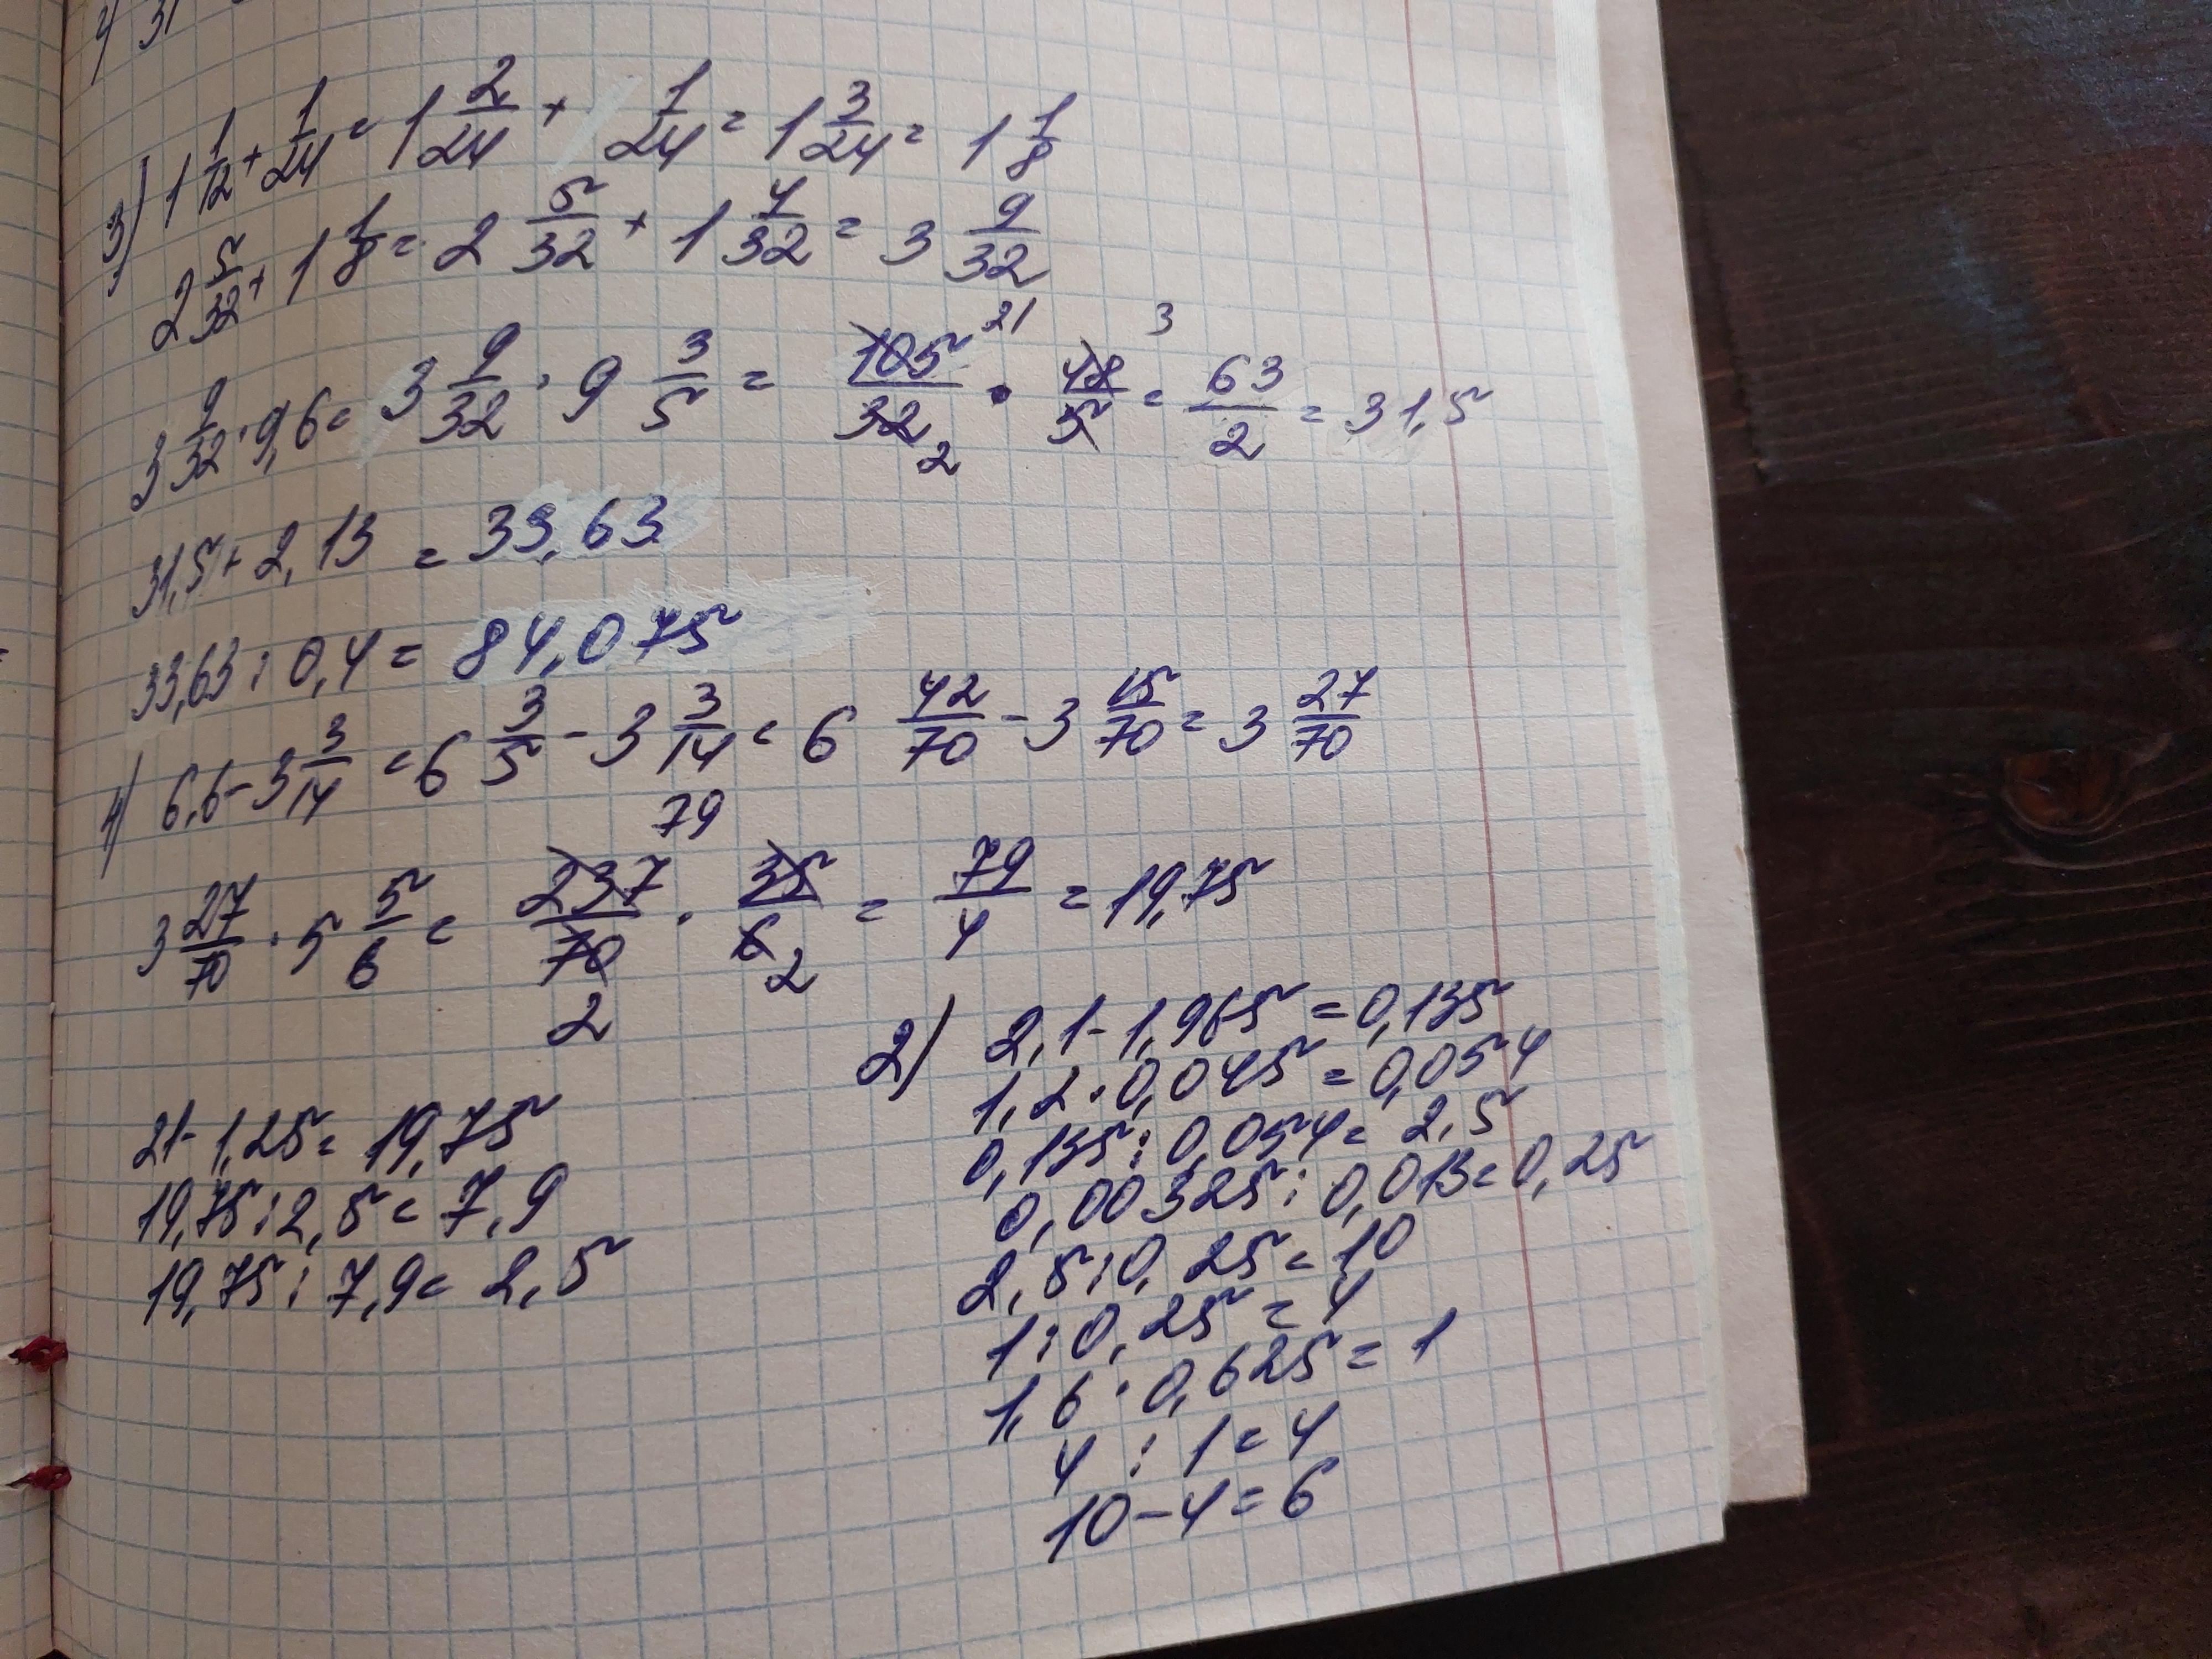 3) 1 1/12 + 1/24 = 1 2/24 + 1/24 = 1 3/24 = 1 1/8
2 5/32 + 1 1/8 = 2 5/32 + 1 4/32 = 3 9/32
3 9/32 · 9,6 = 3 9/32 · 9 3/5 = 105/32 · 48/5 = 63/2 = 31,5
21 3 2
31,5 + 2,13 = 33,63
33,63 : 0,4 = 84,075
4) 6,6 - 3 3/14 = 6 3/5 - 3 3/14 = 6 42/70 - 3 15/70 = 3 27/70
3 27/70 · 5 5/6 = 237/70 · 35/6 = 79/4 = 19,75
79 2 2
21 - 1,25 = 19,75
19,75 : 2,5 = 7,9
19,75 : 7,9 = 2,5
2) 2,1 - 1,965 = 0,135
1,2 · 0,045 = 0,054
0,135 : 0,054 = 2,5
0,00325 : 0,013 = 0,25
2,5 : 0,25 = 10
1 : 0,25 = 4
1,6 · 0,625 = 1
4 : 1 = 4
10 - 4 = 6